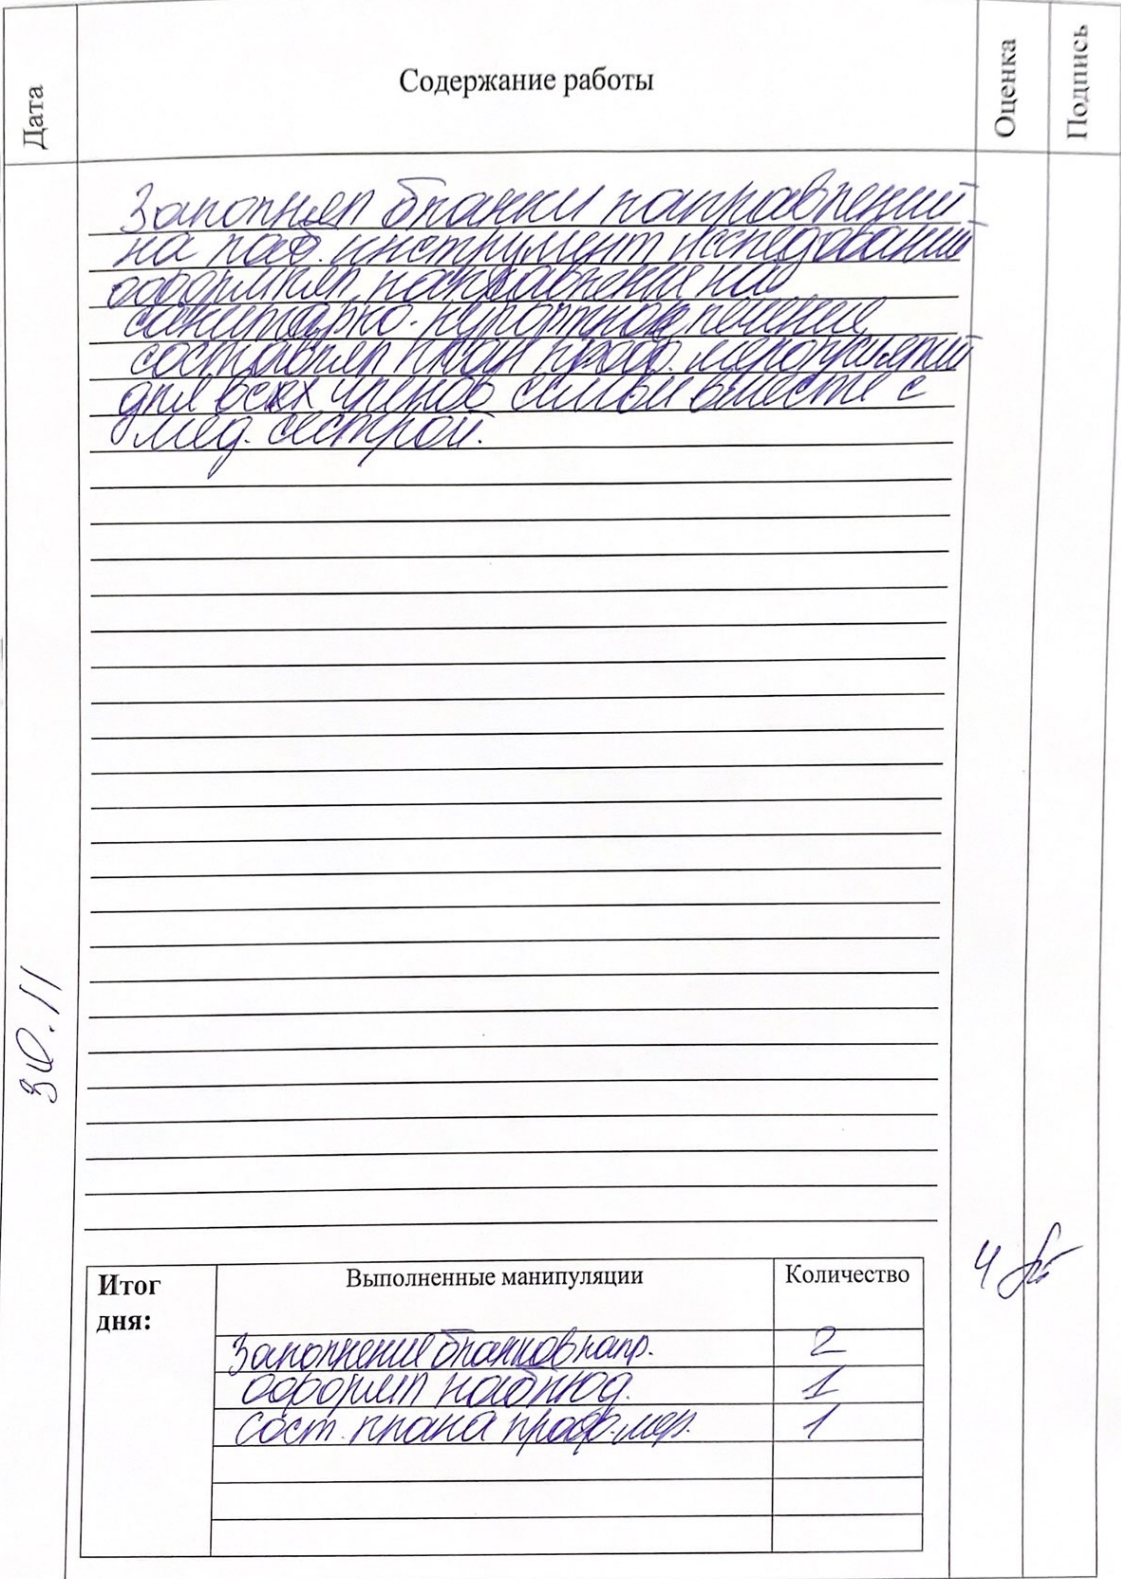 Дата
Содержание работы
Оценка
Подпись
Заполнял бланки направлений
на лаб. инструмент исследований
оформлял направления на
санитарно-курортное лечение
составлял план проф. мероприятий
для всех членов семьи вместе с
мед. сестрой.
30.11
4
Итог дня:
Выполненные манипуляции
Количество
Заполнение бланков напр.
2
оформил наблюд.
1
сост. плана проф. мер.
1